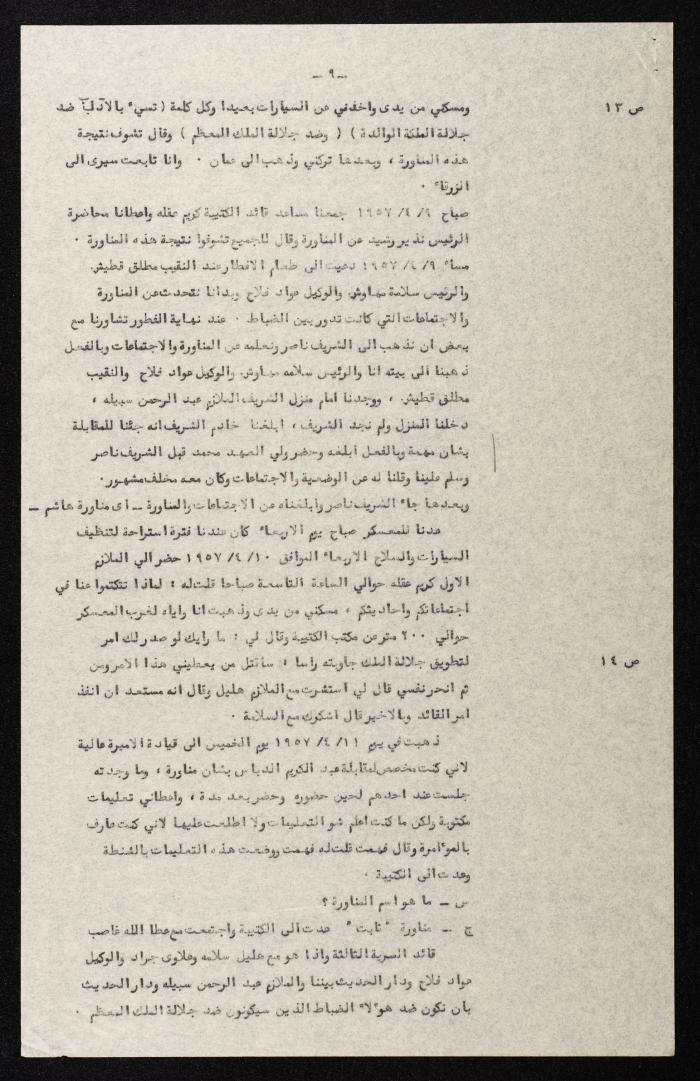 ـ ٩ ـ
ص ١٣ ومسكني من يدى واخذني عن السيارات بعيدا وكل كلمة ( تسيء بالآداب ضد
جلالة الملكة الوالدة ) ( وضد جلالة الملك المعظم ) وقال تشوف نتيجة
هذه المناورة ، وبعدها تركني وذهب الى عمان ٠ وانا تابعت سيرى الى
الزرقاء ٠
صباح ٩ /٤ /١٩٥٧ جمعنا مساعد قائد الكتيبة كريم عقله واعطانا محاضرة
الرئيس نذير رشيد عن المناورة وقال للجميع تشوفوا نتيجة هذه المناورة ٠
مساء ٩ /٤ /١٩٥٧ دعيت الى طعام الافطار عند النقيب مطلق قطيش
والرئيس سلامة مهاوش والوكيل عواد فلاح وبدانا نتحدث عن المناورة
والاجتماعات التي كانت تدور بين الضباط ٠ عند نهاية الفطور تشاورنا مع
بعض ان نذهب الى الشريف ناصر ونعلمه عن المناورة والاجتماعات وبالفعل
ذهبنا الى بيته انا والرئيس سلامه مهاوش والوكيل عواد فلاح والنقيب
مطلق قطيش ، ووجدنا امام منزل الشريف الملازم عبد الرحمن سبيله ،
دخلنا المنزل ولم نجد الشريف ، ابلغنا خادم الشريف انه جئنا للمقابلة
بشان مهمة وبالفعل ابلغه وحضر ولي العهد محمد قبل الشريف ناصر
وسلم علينا وقلنا له عن الوضعية والاجتماعات وكان معه مخلف مشهور ٠
وبعدها جاء الشريف ناصر وابلغناه عن الاجتماعات والمناورة ــ اى مناورة هاشم ــ
عدنا للمعسكر صباح يوم الاربعاء كان عندنا فترة استراحة لتنظيف
السيارات والسلاح الاربعاء الموافق ١٠ /٤ /١٩٥٧ حضر الي الملازم
الاول كريم عقله حوالي الساعة التاسعة صباحا قلت له : لماذا تتكتموا عنا في
اجتماعاتكم واحاديثكم ، مسكني من يدى وذهبت انا واياه لغرب المعسكر
حوالي ٢٠٠ متر عن مكتب الكتيبة وقال لي : ما رايك لو صدر لك امر
ص ١٤ لتطويق جلالة الملك جاوبته راسا : ساقتل من يعطيني هذا الامر ومن
ثم انحر نفسي قال لي استشرت مع الملازم هليل وقال انه مستعد ان انفذ
امر القائد وبالاخير قال اشكرك مع السلامة ٠
ذهبت في يوم ١١ /٤ /١٩٥٧ يوم الخميس الى قيادة الاميرة عالية
لاني كنت مخصص لمقابلة عبد الكريم الدباس بشان مناورة ، وما وجدته
جلست عند احدهم لحين حضوره وحضر بعد مدة ، واعطاني تعليمات
مكتوبة ولكن ما كنت اعلم شو التعليمات ولا اطلعت عليها لاني كنت عارف
بالموءامرة وقال فهمت قلت له فهمت ووضعت هذه التعليمات بالشنطة
وعدت الى الكتيبة ٠
س ــ ما هو اسم المناورة ؟
ج ــ مناورة " ثابت " عدت الى الكتيبة واجتمعت مع عطا الله غاصب
قائد السرية الثالثة واذا هو مع هليل سلامه وعلاوى جراد والوكيل
عواد فلاح ودار الحديث بيننا والملازم عبد الرحمن سبيله ودار الحديث
بان نكون ضد هوءلاء الضباط الذين سيكونون ضد جلالة الملك المعظم ٠